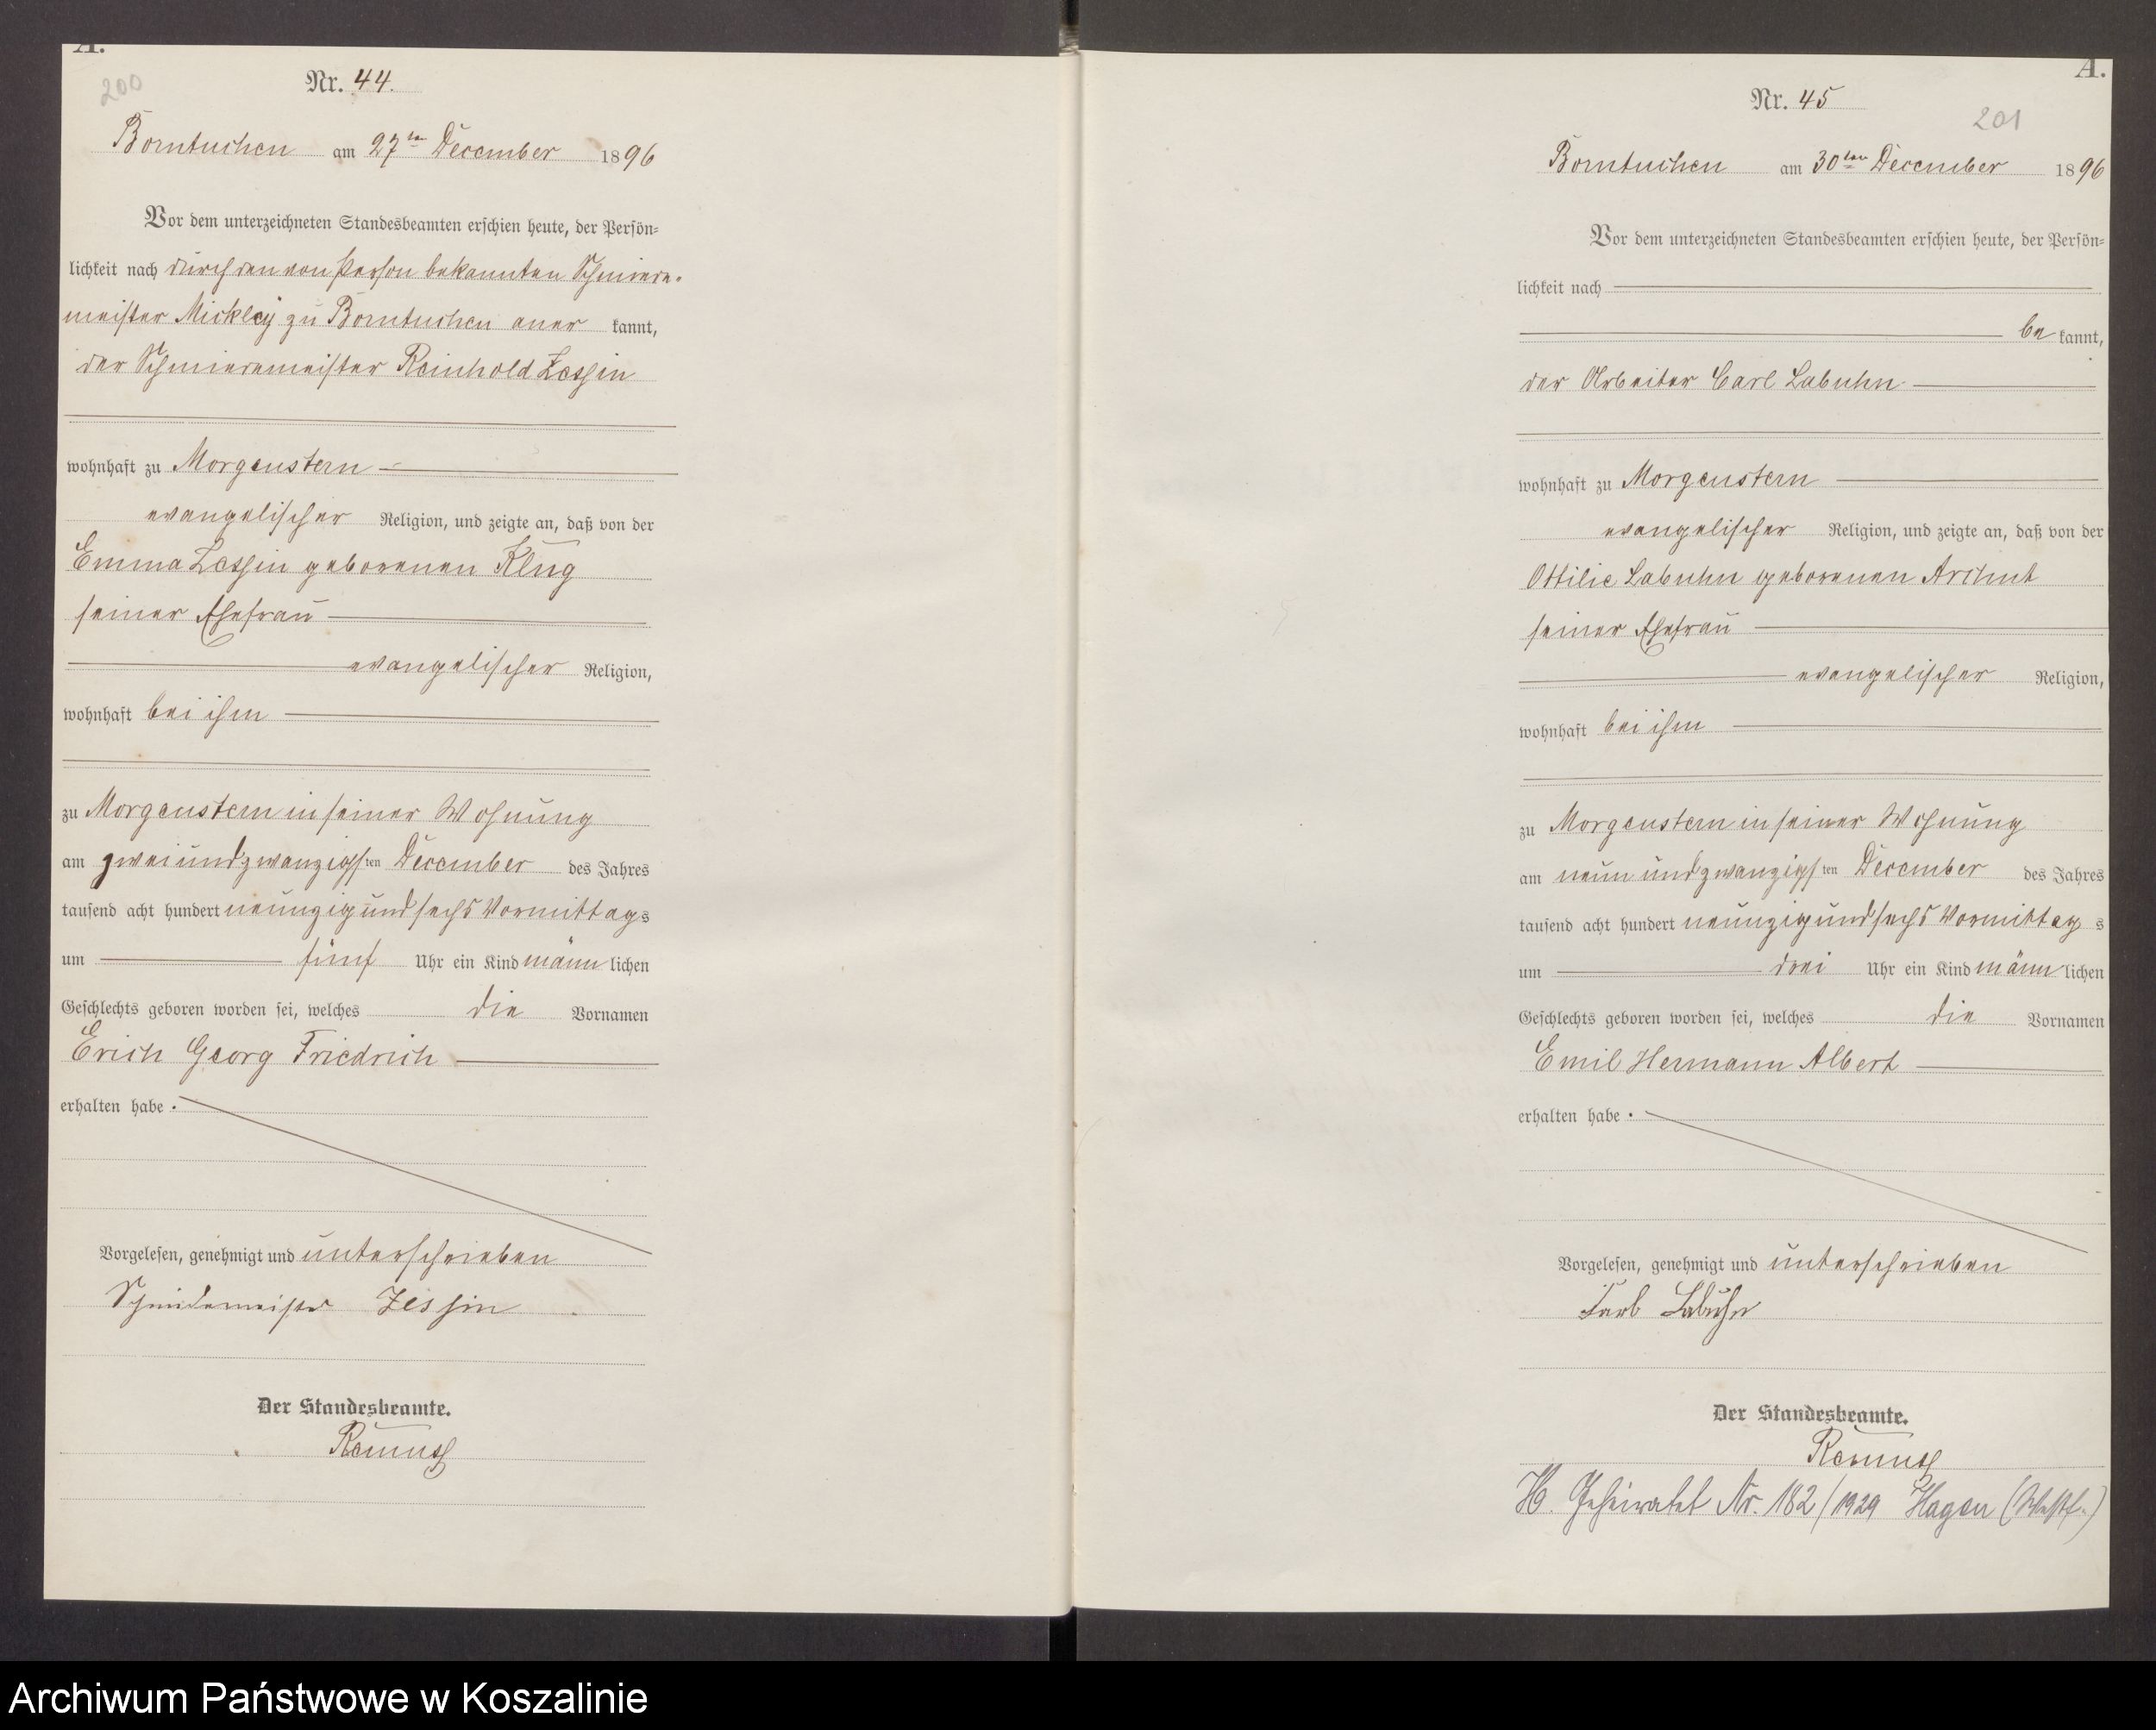 A.
200
Nr. 44.
Borntuchen am 27ten December 1896
Vor dem unterzeichneten Standesbeamten erschien heute, der Persön-
lichkeit nach durch den von Person bekannten Schmiede-
meister Mickley zu Borntuchen aner kannt,
der Schmiedemeister Reinhold Zessin
wohnhaft zu Morgenstern
evangelischer Religion, und zeigte an, daß von der
Emma Zessin geborenen Klug
seiner Ehefrau
evangelischer Religion,
wohnhaft bei ihm
zu Morgenstern in seiner Wohnung
am zweiundzwanzigsten December des Jahres
tausend acht hundert neunzig und sechs Vormittags
um fünf Uhr ein Kind männlichen
Geschlechts geboren worden sei, welches die Vornamen
Erich Georg Friedrich
erhalten habe.
Vorgelesen, genehmigt und unterschrieben
Schmidemeister Zessin
Der Standesbeamte.
A.
Nr. 45
201
Borntuchen am 30ten December 1896
Vor dem unterzeichneten Standesbeamten erschien heute, der Persön-
lichkeit nach
be kannt,
der Arbeiter Carl Labuhn
wohnhaft zu Morgenstern
evangelischer Religion, und zeigte an, daß von der
Ottilie Labuhn geborenen Arndt
seiner Ehefrau
evangelischer Religion,
wohnhaft bei ihm
zu Morgenstern in seiner Wohnung
am neun und zwanzigsten December des Jahres
tausend acht hundert neunzig und sechs Vormittags
um drei Uhr ein Kind männlichen
Geschlechts geboren worden sei, welches die Vornamen
Emil Hermann Albert
erhalten habe.
Vorgelesen, genehmigt und unterschrieben
Labuhn
Der Standesbeamte.
Geheiratet Nr. 182/1929 Hagen (Westf.)
Archiwum Państwowe w Koszalinie